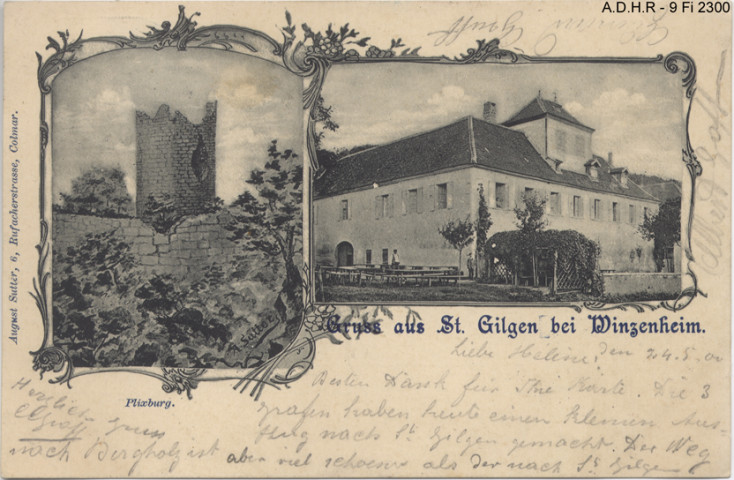 A.D.H.R - 9 Fi 2300
August Sutter, 6, Rufacherstrasse, Colmar.
A. Sutter.
Plixburg.
Gruss aus St. Gilgen bei Winzenheim.
Liebe Helene, den 24.5.00
Besten Dank für Ihre Karte. Die 3
grafen haben heute einen kleinen Aus-
flug nach St Gilgen gemacht. Der Weg
nach Bergholz ist aber viel schoener als der nach St Gilgen
Herzlich Gruss